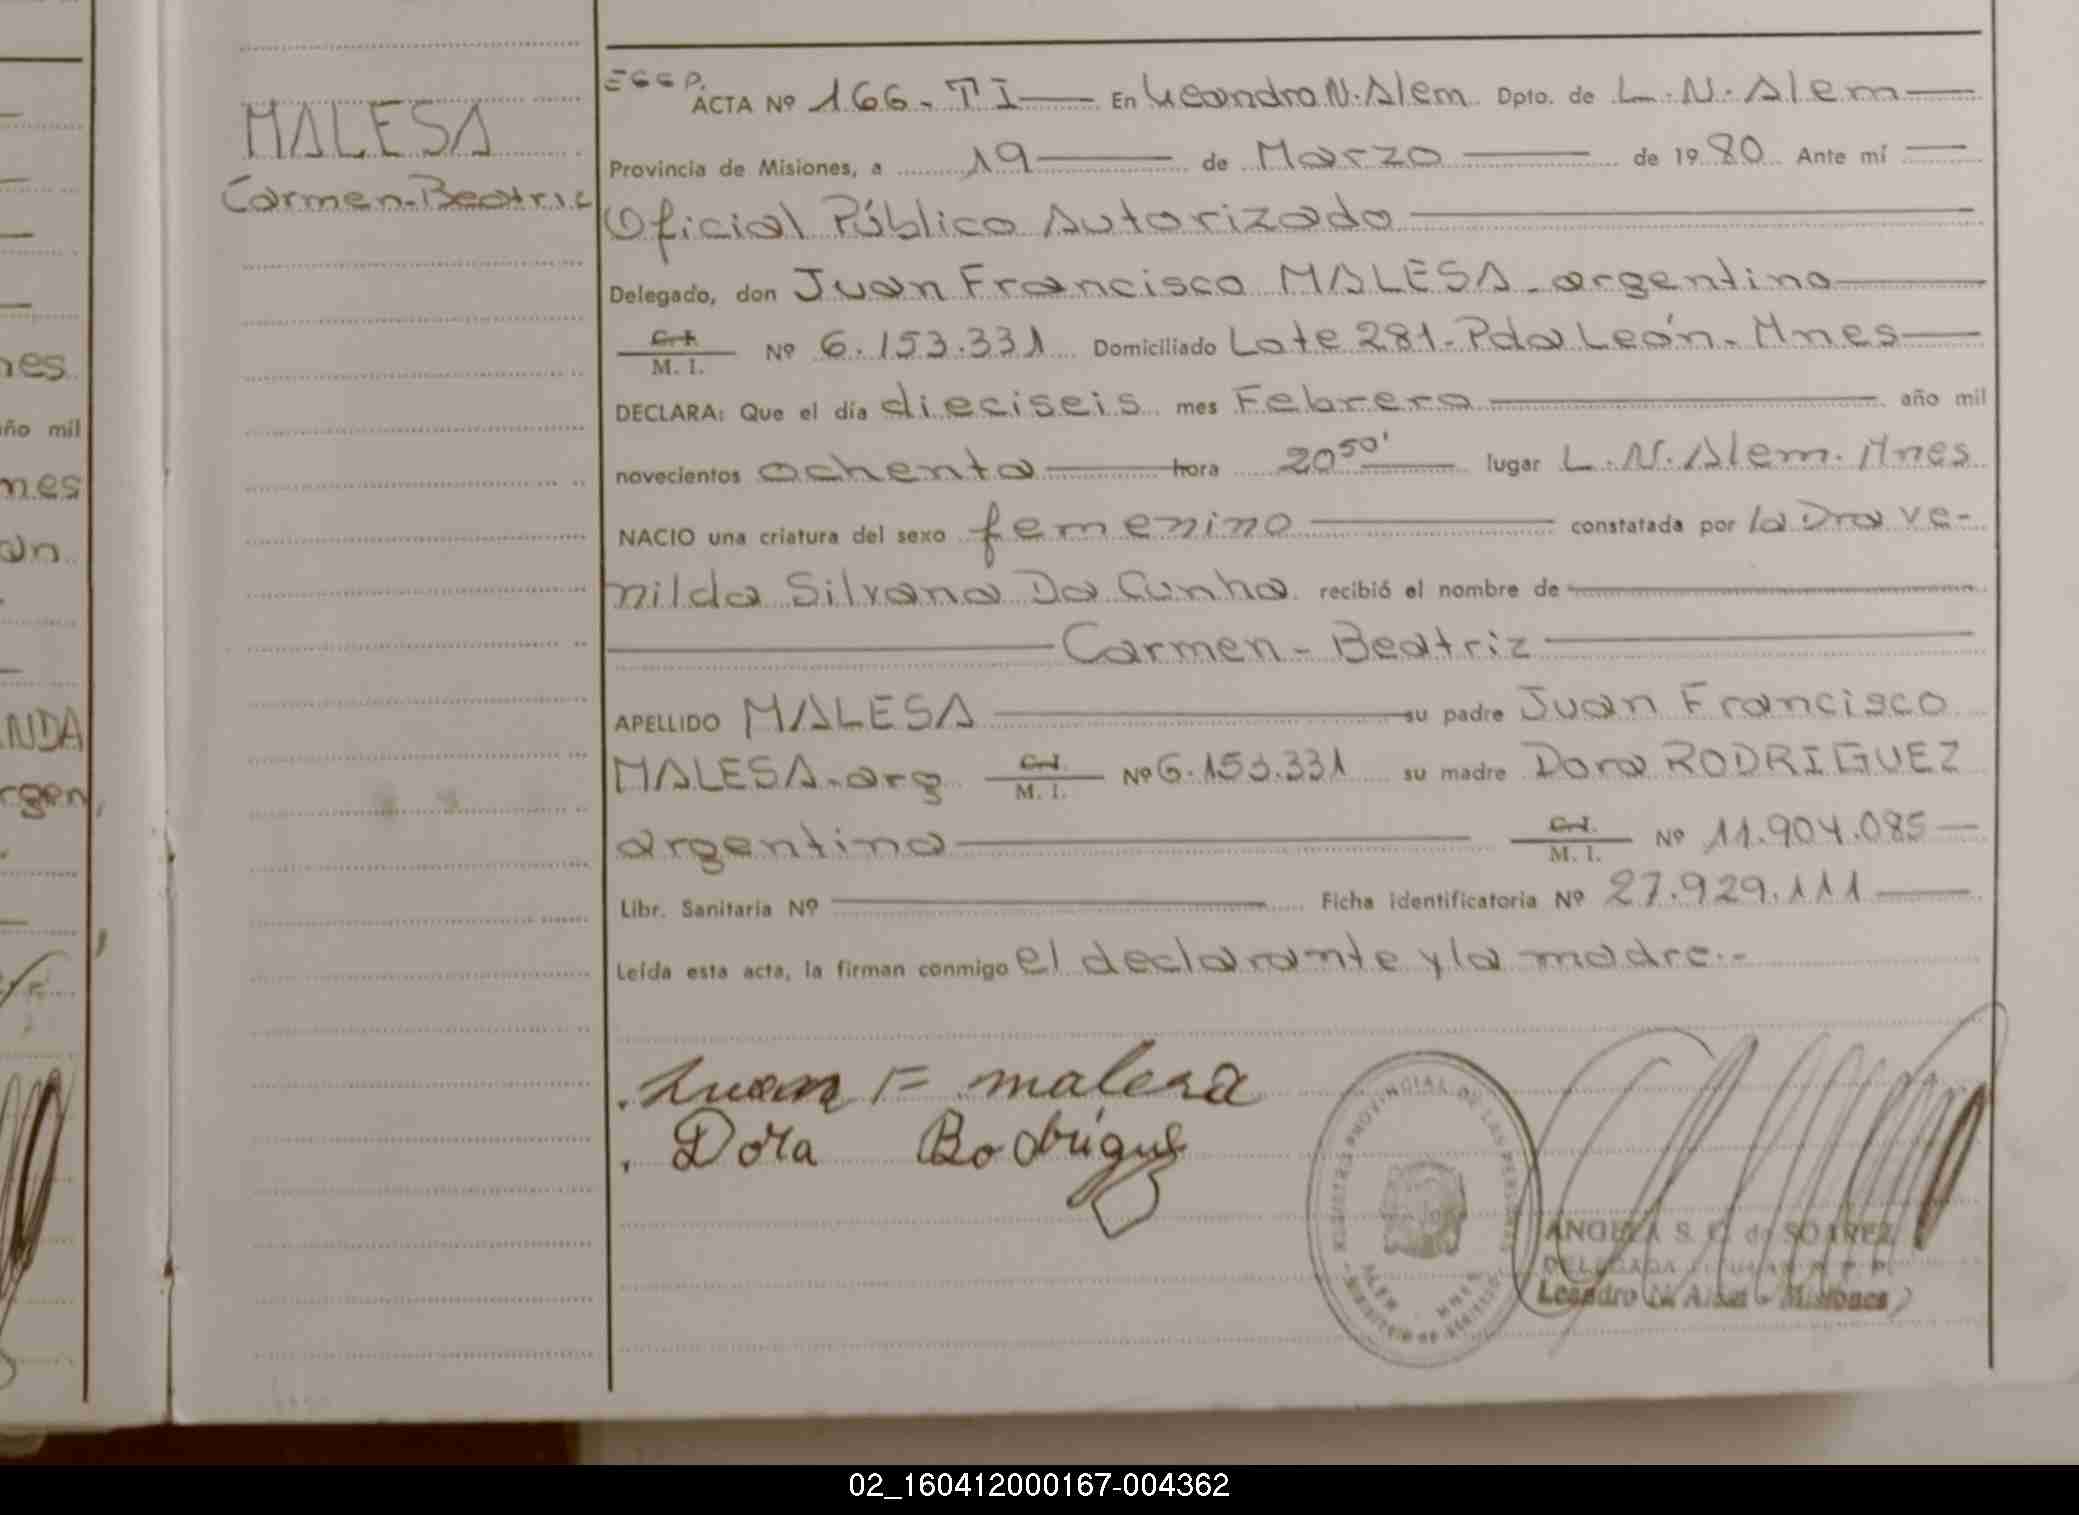 MALESA
Carmen-Beatric
ACTA Nº 166-TI En Leandro N. Alem Dpto. de L. N. Alem
Provincia de Misiones, a 19 de Marzo de 1980 Ante mí
Oficial Público Autorizado
Delegado, don Juan Francisco MALESA-argentino
C.I. M. I. Nº 6.153.331 Domiciliado Lote 281-Pda León-Mnes
DECLARA: Que el día dieciseis mes Febrero año mil
novecientos ochenta hora 20 50' lugar L. N. Alem. Mnes
NACIO una criatura del sexo femenino constatada por la Dra Ve-
nilda Silvana Da Cunha recibió el nombre de
Carmen-Beatriz
APELLIDO MALESA su padre Juan Francisco
MALESA-arg C.I. M. I. Nº 6.153.331 su madre Dora RODRIGUEZ
argentina C.I. M. I. Nº 11.904.085
Libr. Sanitaria Nº Ficha identificatoria Nº 27.929.111
Leída esta acta, la firman conmigo el declarante y la madre.-
Juan F malesa
Dora Rodriguez
REGISTRO PROVINCIAL DE LAS PERSONAS
ANGELA S. C. de SOAREZ
DELEGADA TITULAR R P P
Leandro N. Alem - Misiones
nes
año mil
nes
an
NDA
rgen
02_160412000167-004362